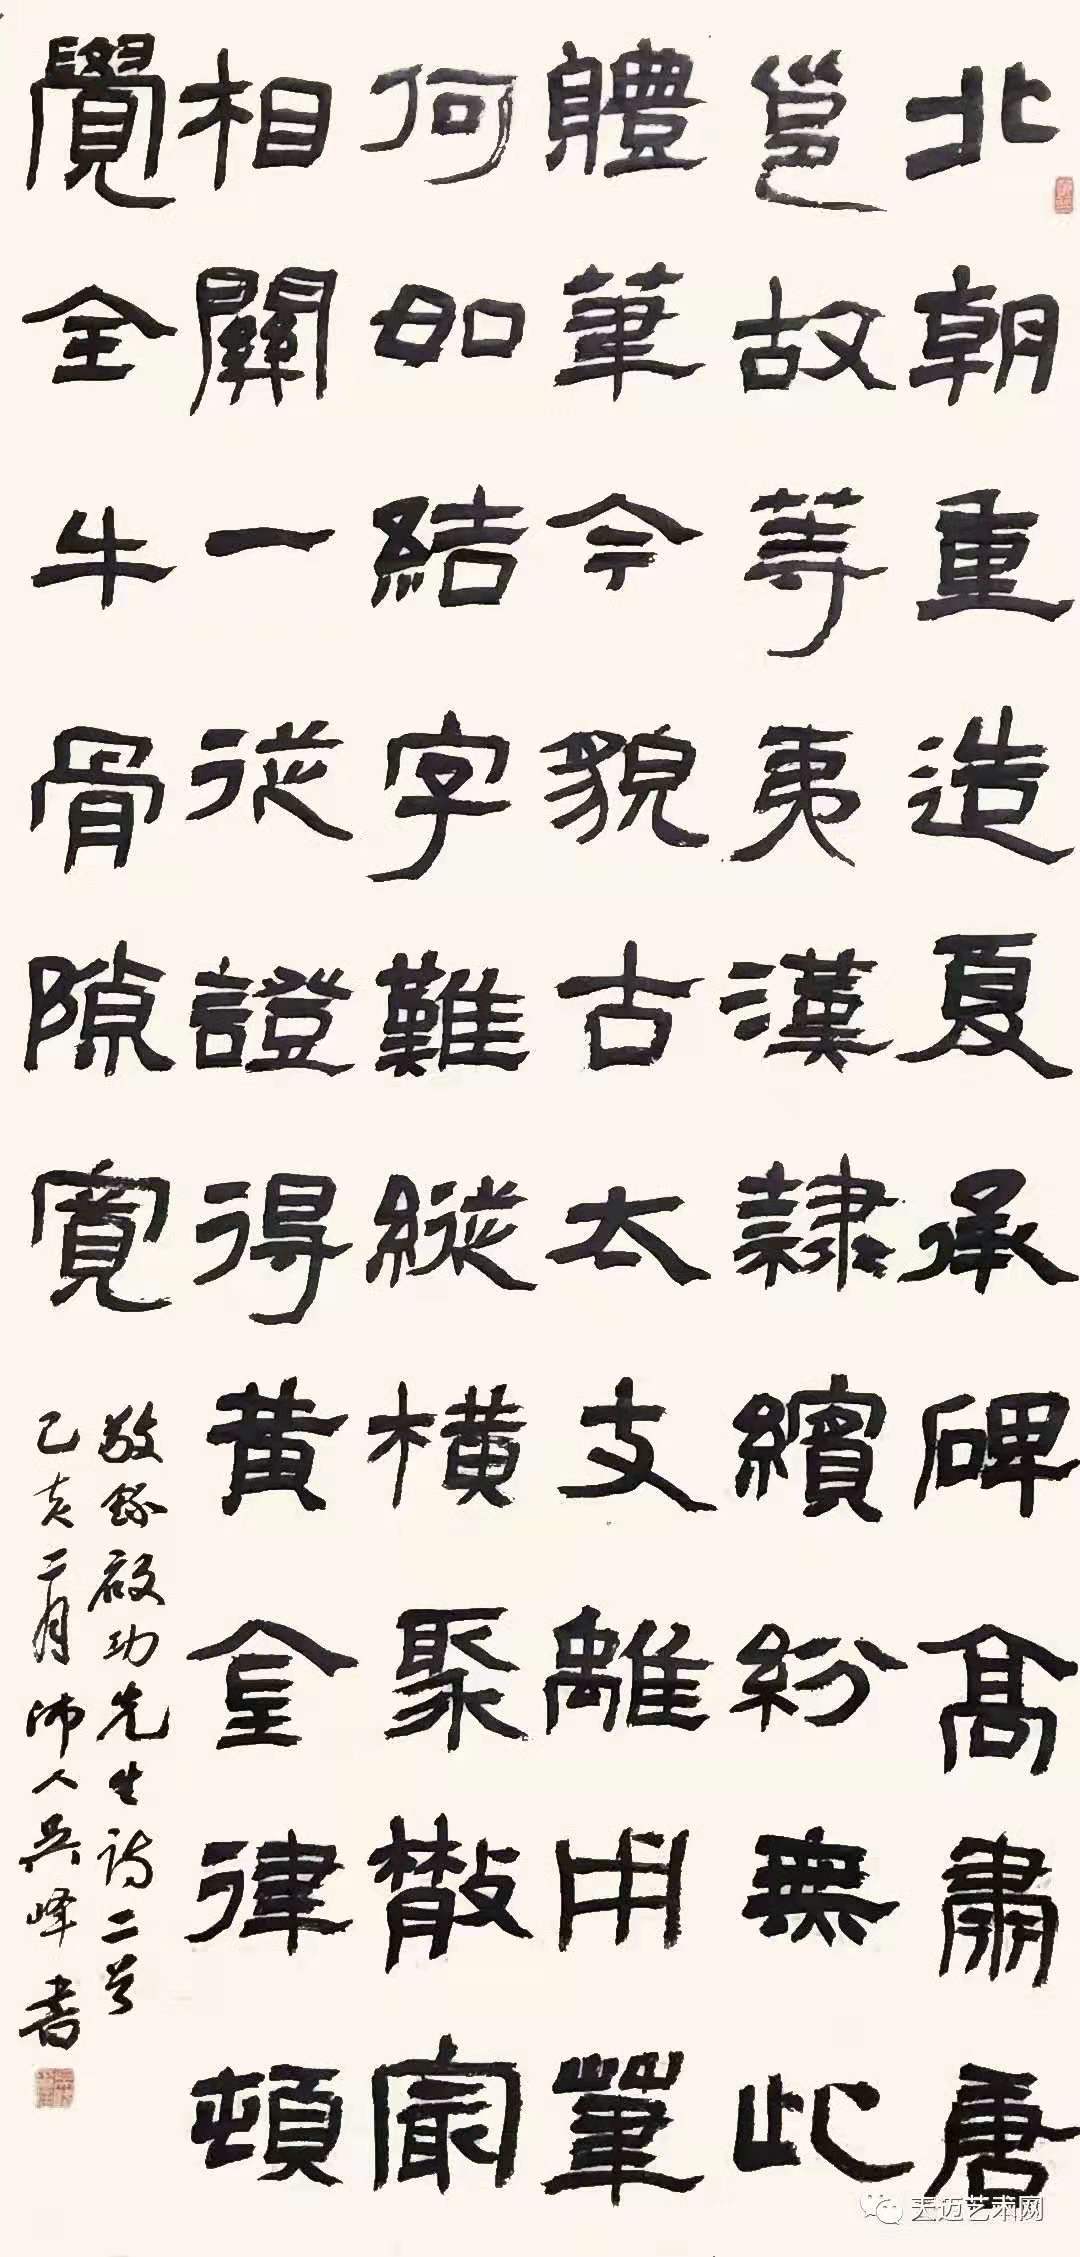 北朝重造夏承碑高肅唐
邕故等夷漢隸繽紛無此
體筆今貌古太支離用筆
何如結字難縱橫聚散冣
相關一從證得黃金律頓
覺全牛骨隙寬
敬錄啟功先生詩二首
乙亥二月沛人吳峰書
天迈艺术网